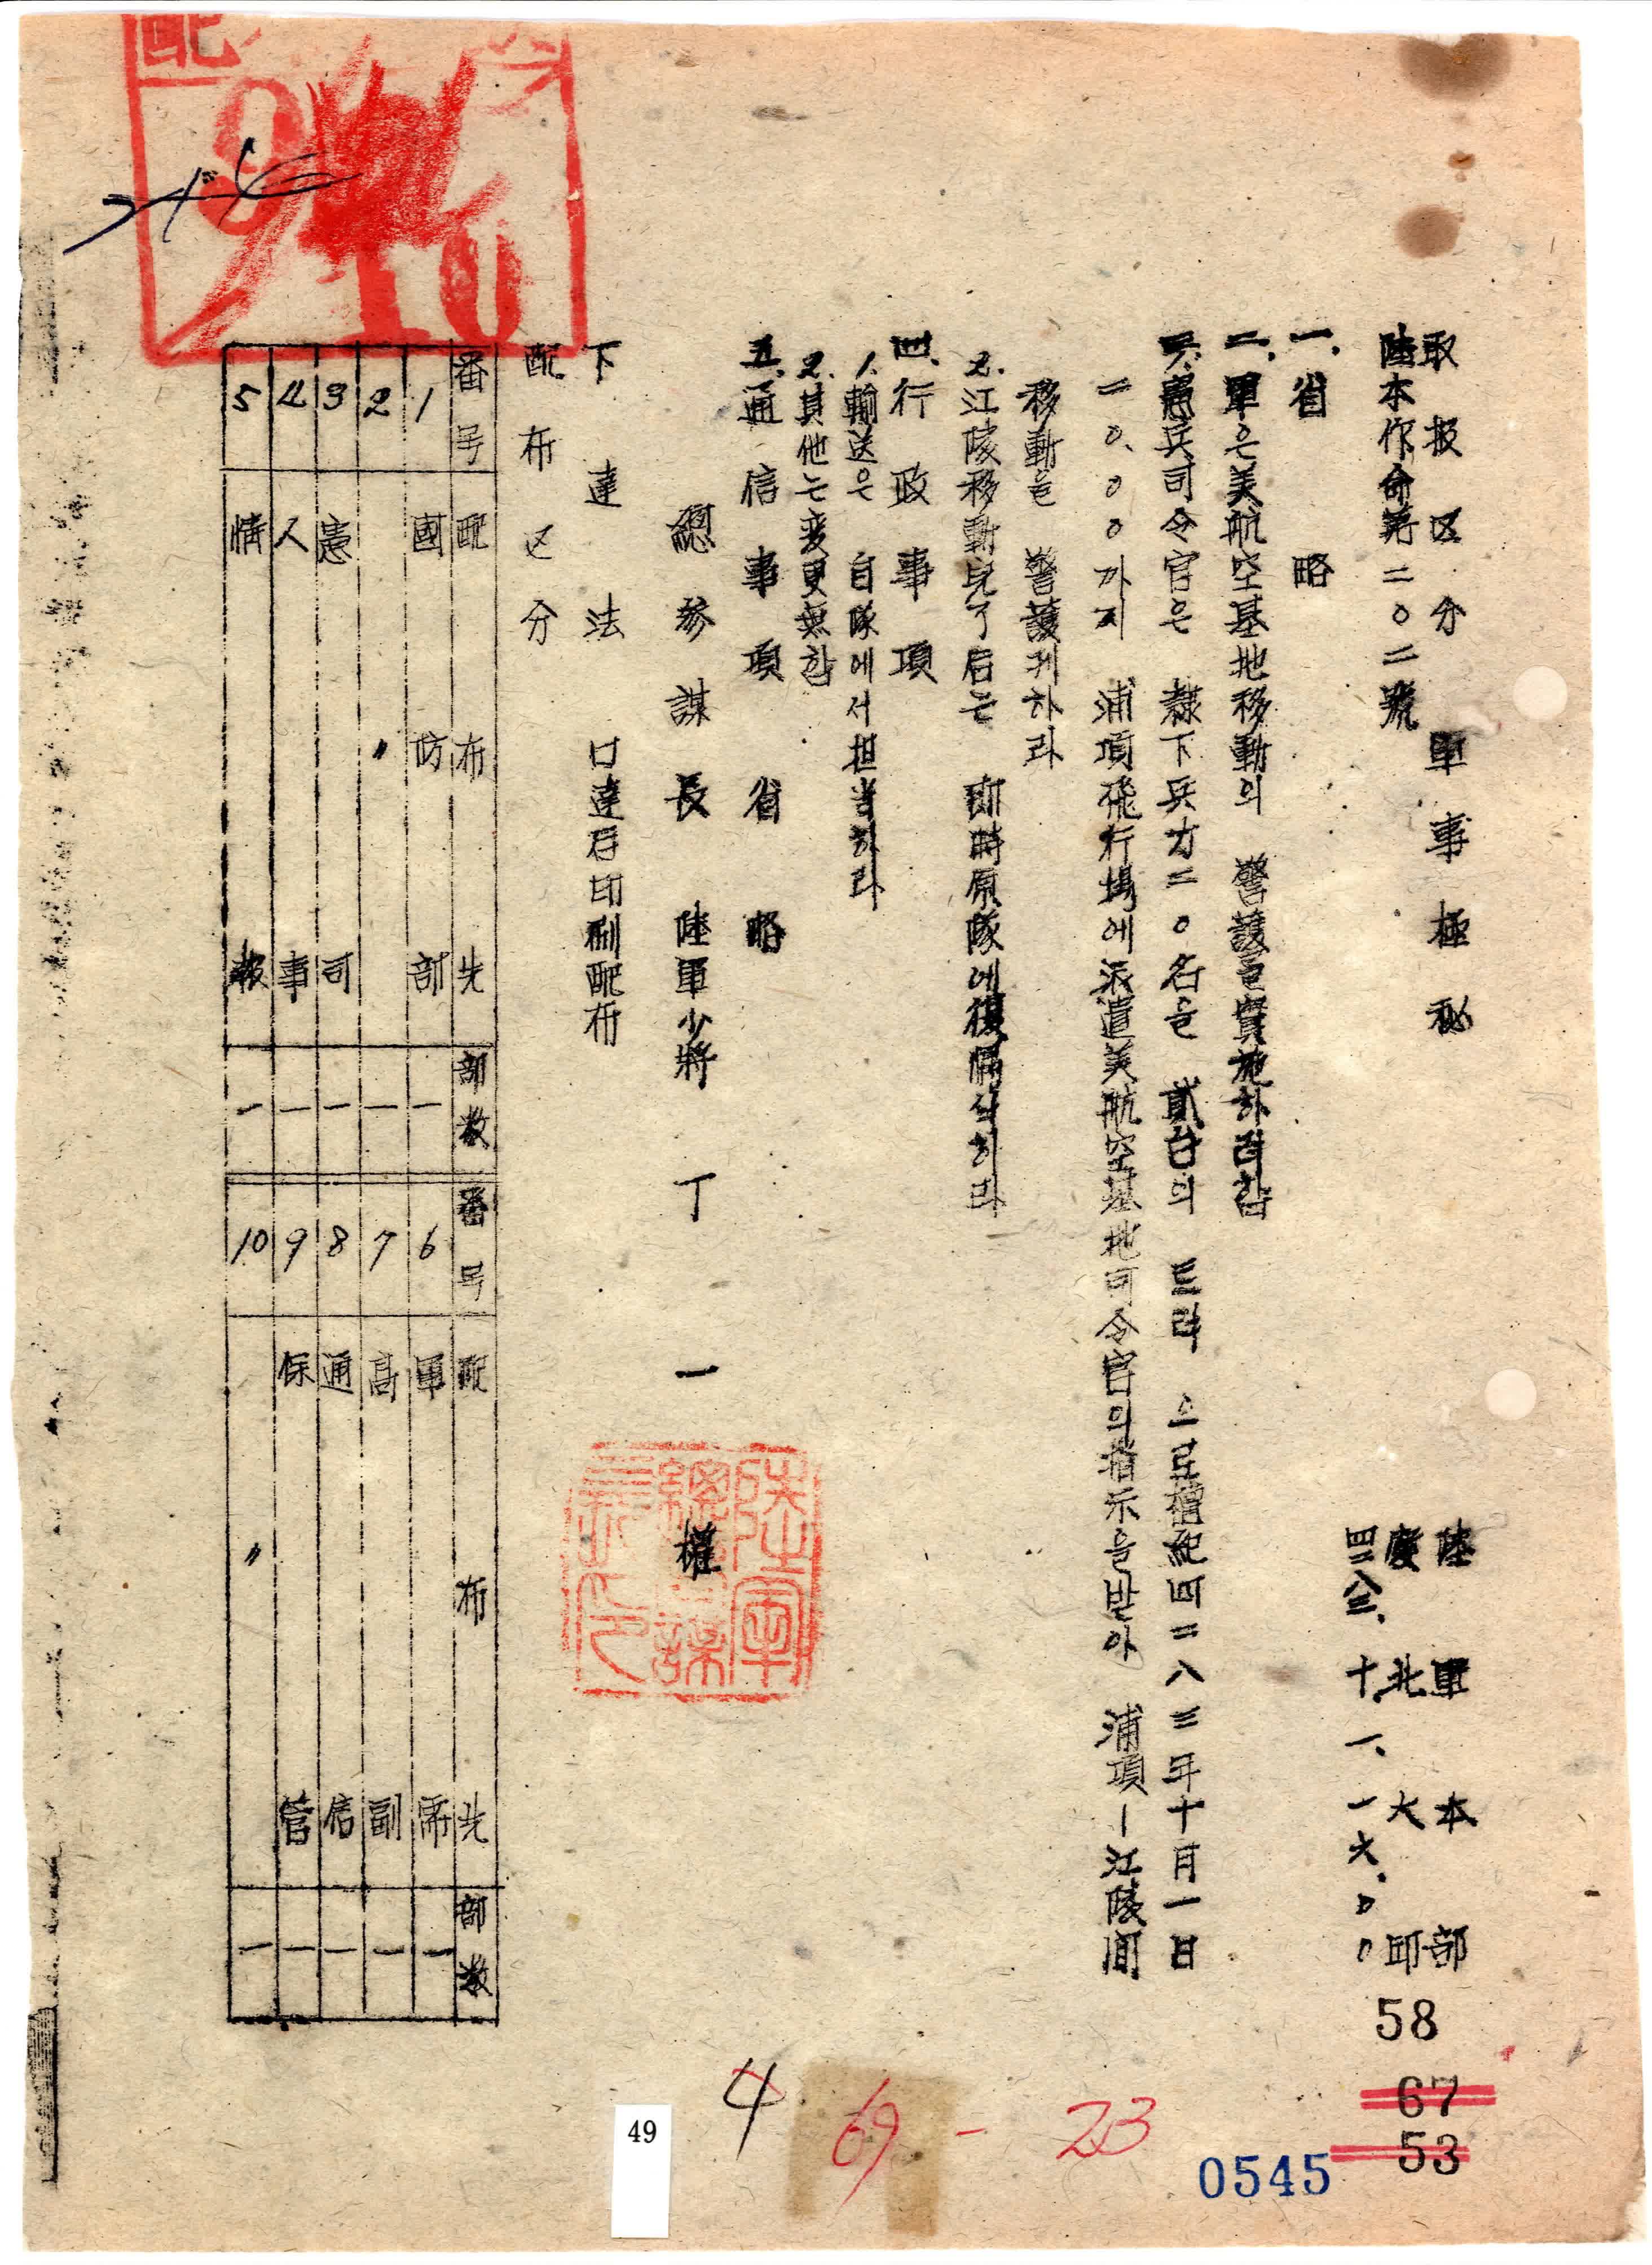 取扱区分 軍事極秘
陸軍本部
陸本作命第二〇二號
慶北大邱
四二八三、十、一、一六、〇〇
一、省略
二、軍은美航空基地移動의 警護를實施하려함
三、1.憲兵司令官은 隸下兵力二〇名을 貳台의 드락 으로檀紀四二八三年十月一日
二〇、〇〇까지 浦項飛行場에派遣美航空基地司令官의指示을받아 浦項—江陵間
移動을 警護케하라
2.江陵移動完了后는 卽時原隊에復歸식히라
四、行政事項
1.輸送은 自隊에서担当하라
2.其他는変更無함
五、通信事項 省略
總參謀長 陸軍少將 丁一權
陸軍
總參謀
長之印
下達法 口達后印刷配布
配布区分
番号 配布先 部数 番号 配布先 部数
1 國防部 一 6 軍 一
2 〃 一 7 高副 一
3 憲司 一 8 通信 一
4 人事 一 9 保管 一
5 情報 一 10 〃 一
配
9
10
58
67
53
0545
4
69 - 23
49